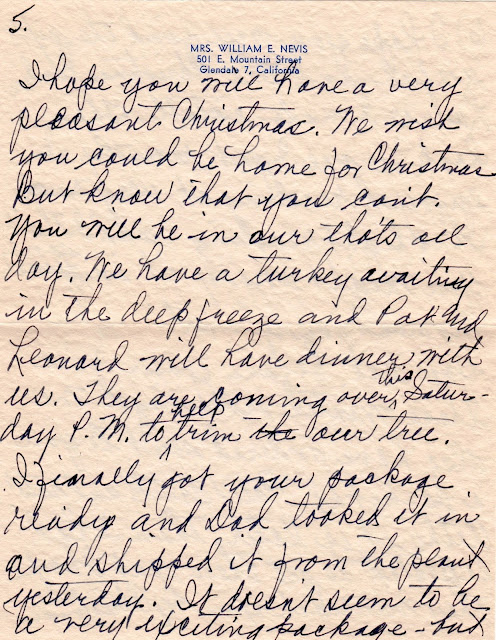 5.
MRS. WILLIAM E. NEVIS
501 E. Mountain Street
Glendale 7, California
I hope you will have a very
pleasant Christmas. We wish
you could be home for Christmas
But know that you can't.
You will be in our tho'ts all
day. We have a turkey awaiting
in the deep freeze and Pat and
Leonard will have dinner with
us. They are coming over, this Satur-
day P.M. to help trim the our tree.
I finally got your package
ready and Dad tooked it in
and shipped it from the plant
yesterday. It doesn't seem to be
a very exciting package - but